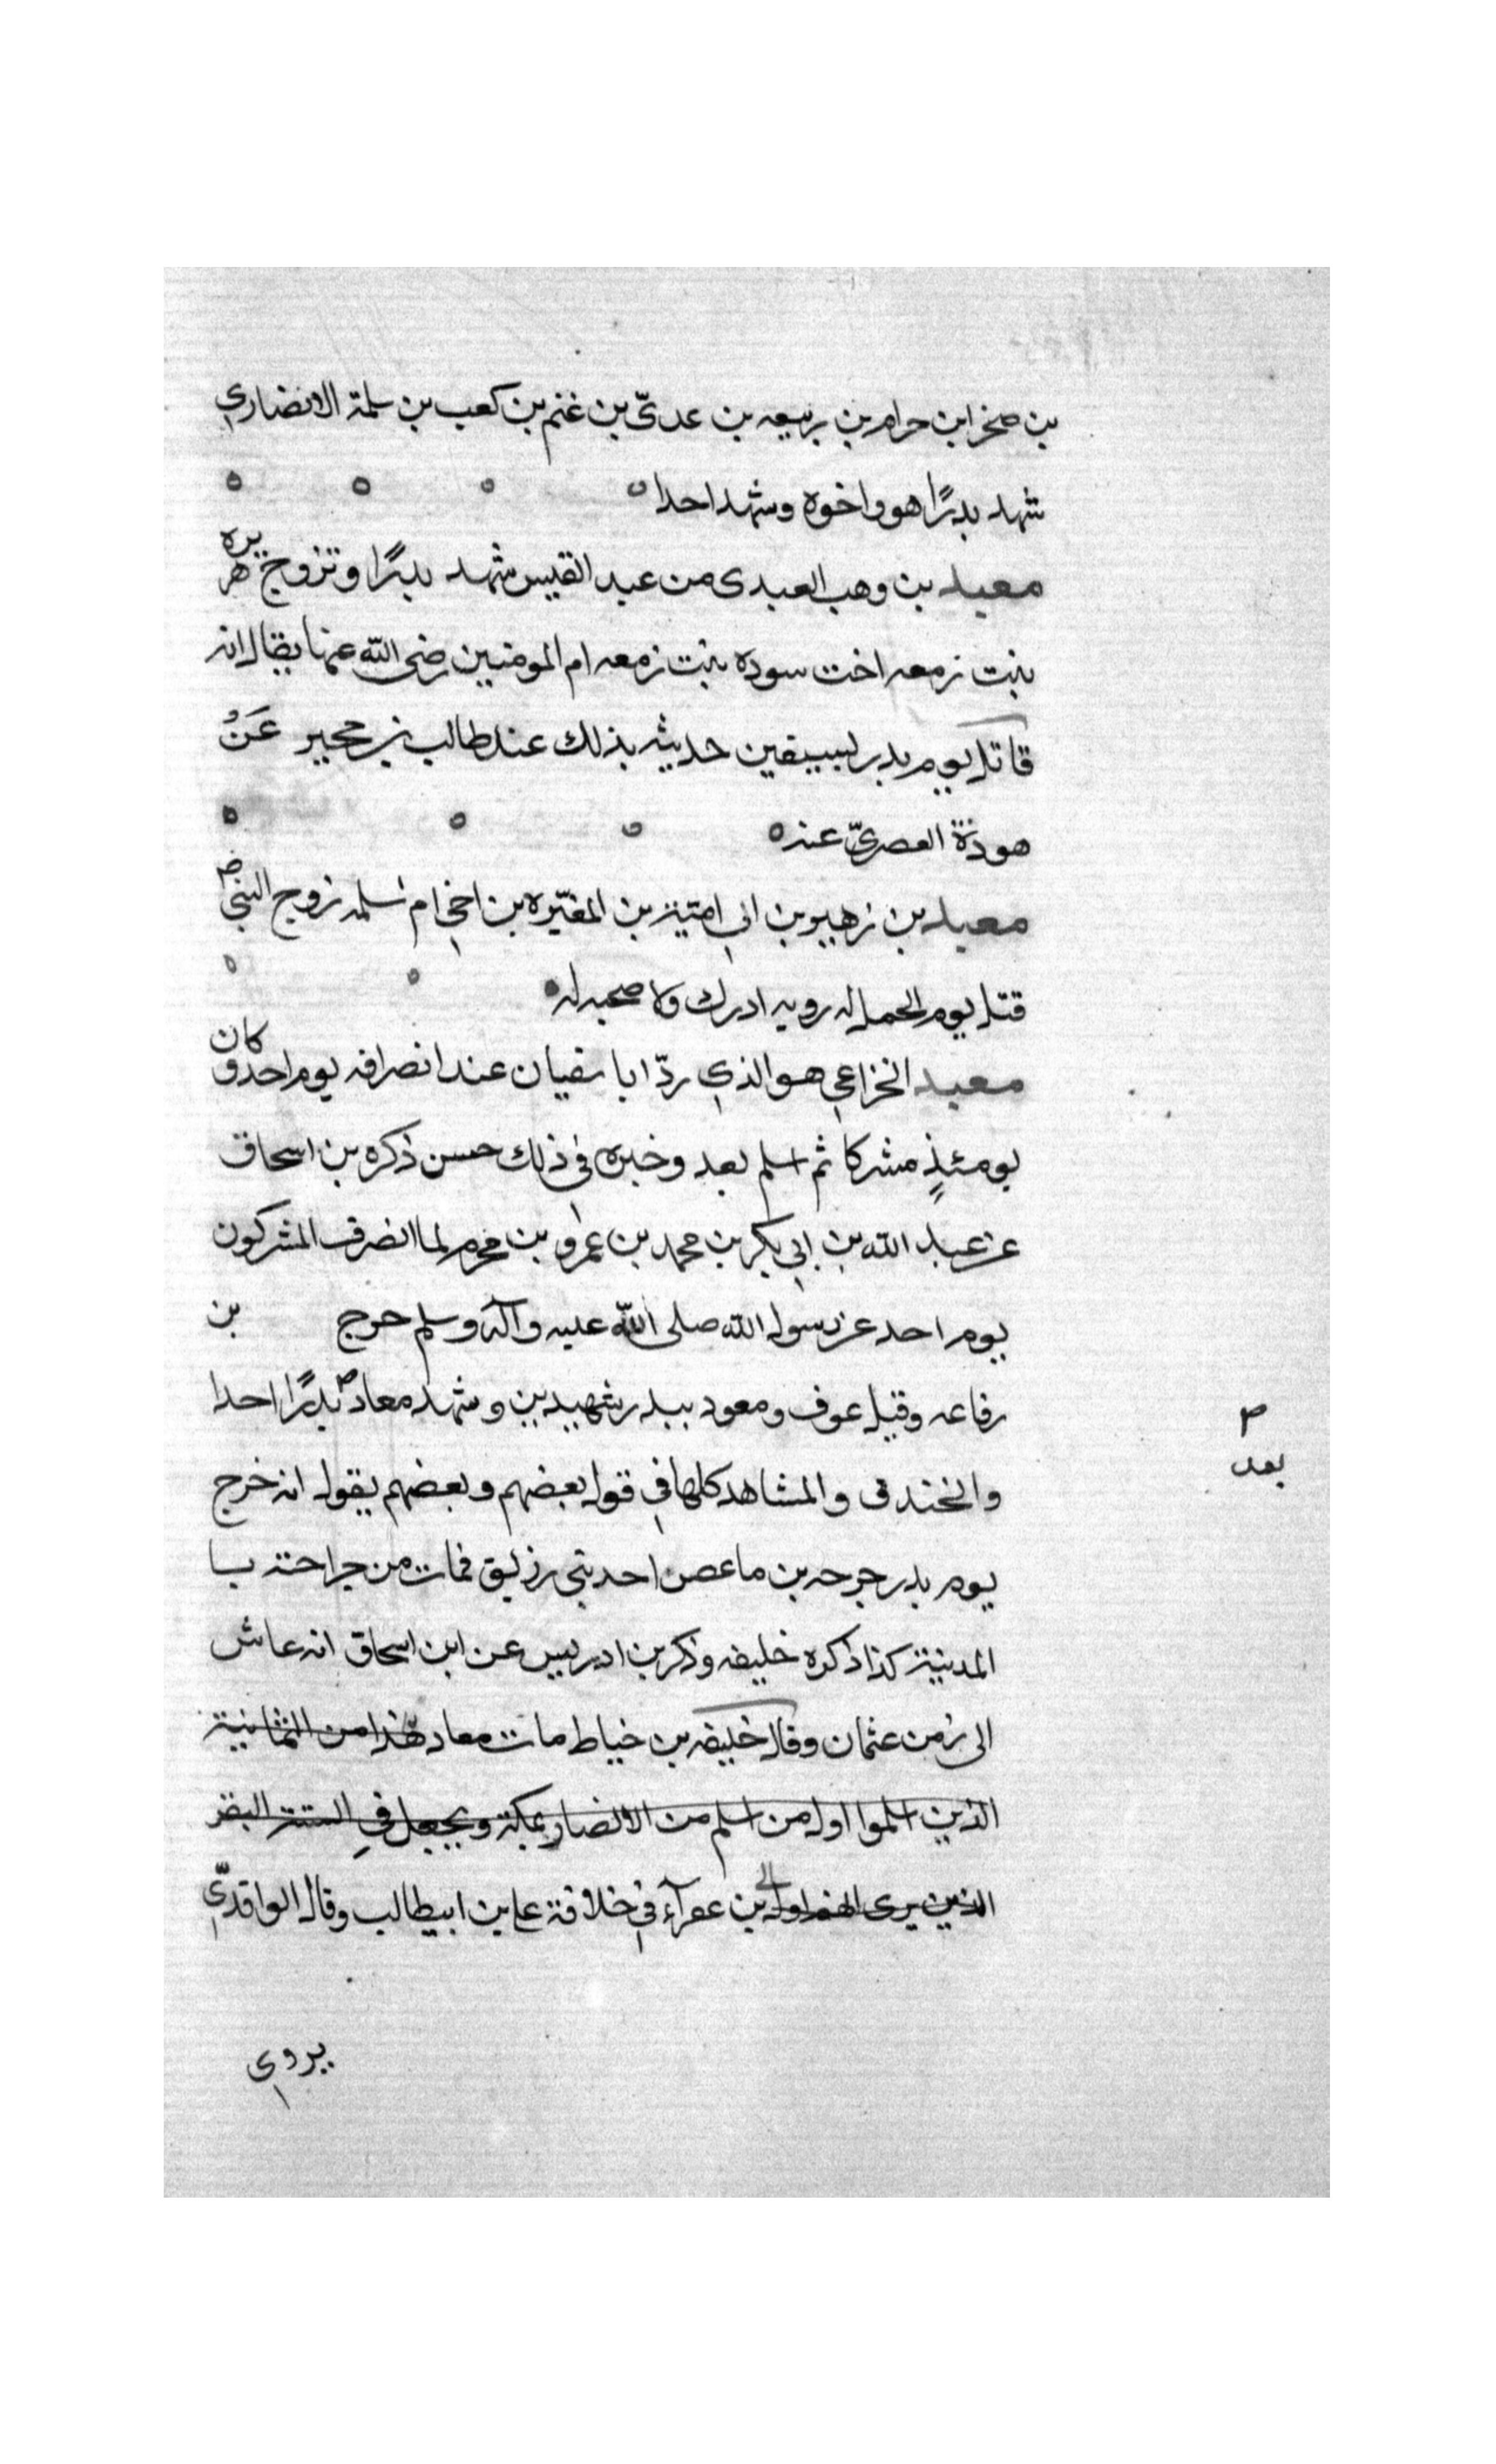 بن صخر ابن حرام بن ربيعه بن عدىّ بن غنم بن كعب بن سلمة الانصاري
شهد بدرًا هو واخوه وشهد احدا
معبد بن وهب العبدى من عبد القيس شهد بدرًا وتزوج هريره
بنت زمعه اخت سودة بنت زمعه ام المومنين رضى الله عنها يقال انه
قاتل يوم بدر بسيفين حديثه بذلك عند طالب بن حجير عَنْ
هوذة العصريّ عنه
معبد بن زهير بن ابي امية بن المغيره بن اخي ام سلمه زوج النبي ص
قتل يوم الجمل له رويه ادرك ولا صحبه له
معبد الخزاعي هو الذي ردّ ابا سفيان عند انصرافه يوم احد وكان
يومئذٍ مشركا ثم اسلم بعد وخبره في ذلك حسن ذكره بن اسحاق
عن عبد الله بن ابي بكر بن محمد بن عمرو بن مخرم لما انصرف المشركون
يوم احد عن رسول الله صلى الله عليه وآله وسلم خرج بن
رفاعه وقتل عوف ومعود ببدر شهيدين وشهد معاد بدرًا احدا
والخندق والمشاهد كلها في قول بعضهم وبعضهم يقول انه خرج
يوم بدر جرحه بن ماعص احد بني رزيق فمات من جراحته با
المدينة كذا ذكره خليفه وذكر بن ادريس عن ابن اسحاق انه عاش
الى زمن عثمان وقال خليفه بن خياط مات معاد هذا من الثمانية
الذين اسلموا اول من اسلم من الانصار بمكة ويجعل في الستة النفر
الذين يروى انهم اول بن عفرآء في خلافة على بن ابيطالب وقال الواقديّ
يروى
ص
بعد